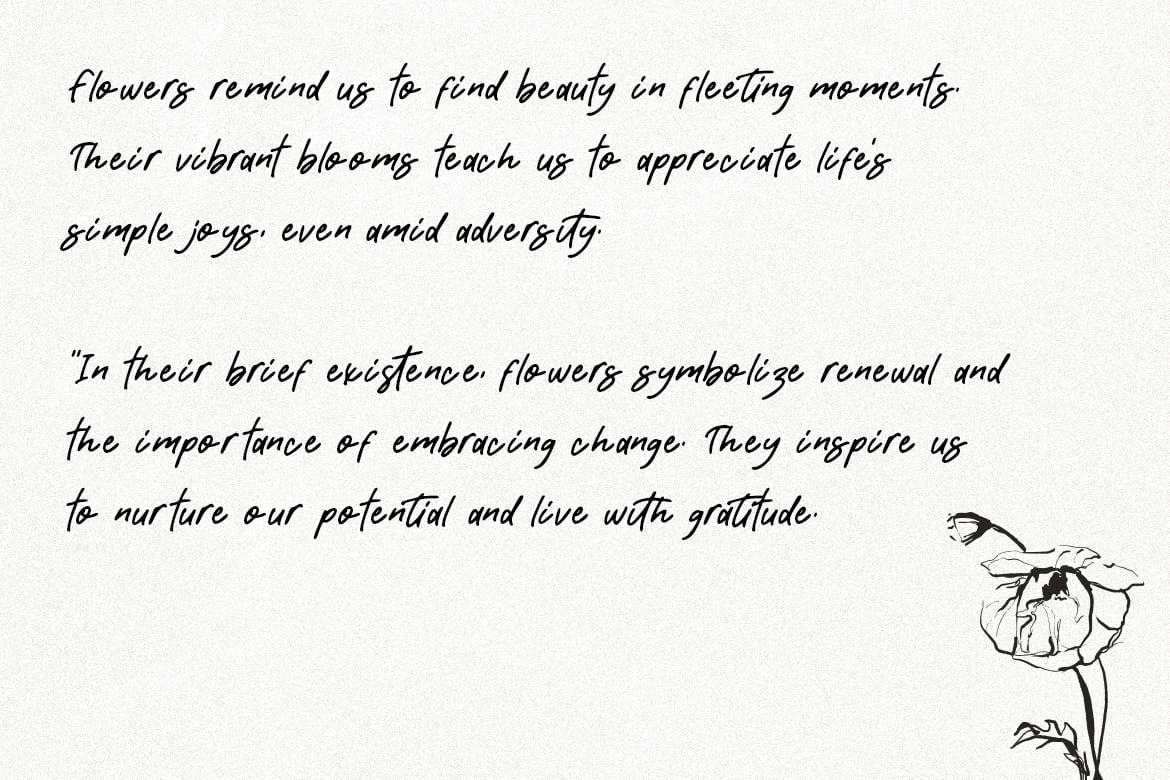 Flowers remind us to find beauty in fleeting moments.
Their vibrant blooms teach us to appreciate life's
simple joys, even amid adversity.
"In their brief existence, flowers symbolize renewal and
the importance of embracing change. They inspire us
to nurture our potential and live with gratitude.